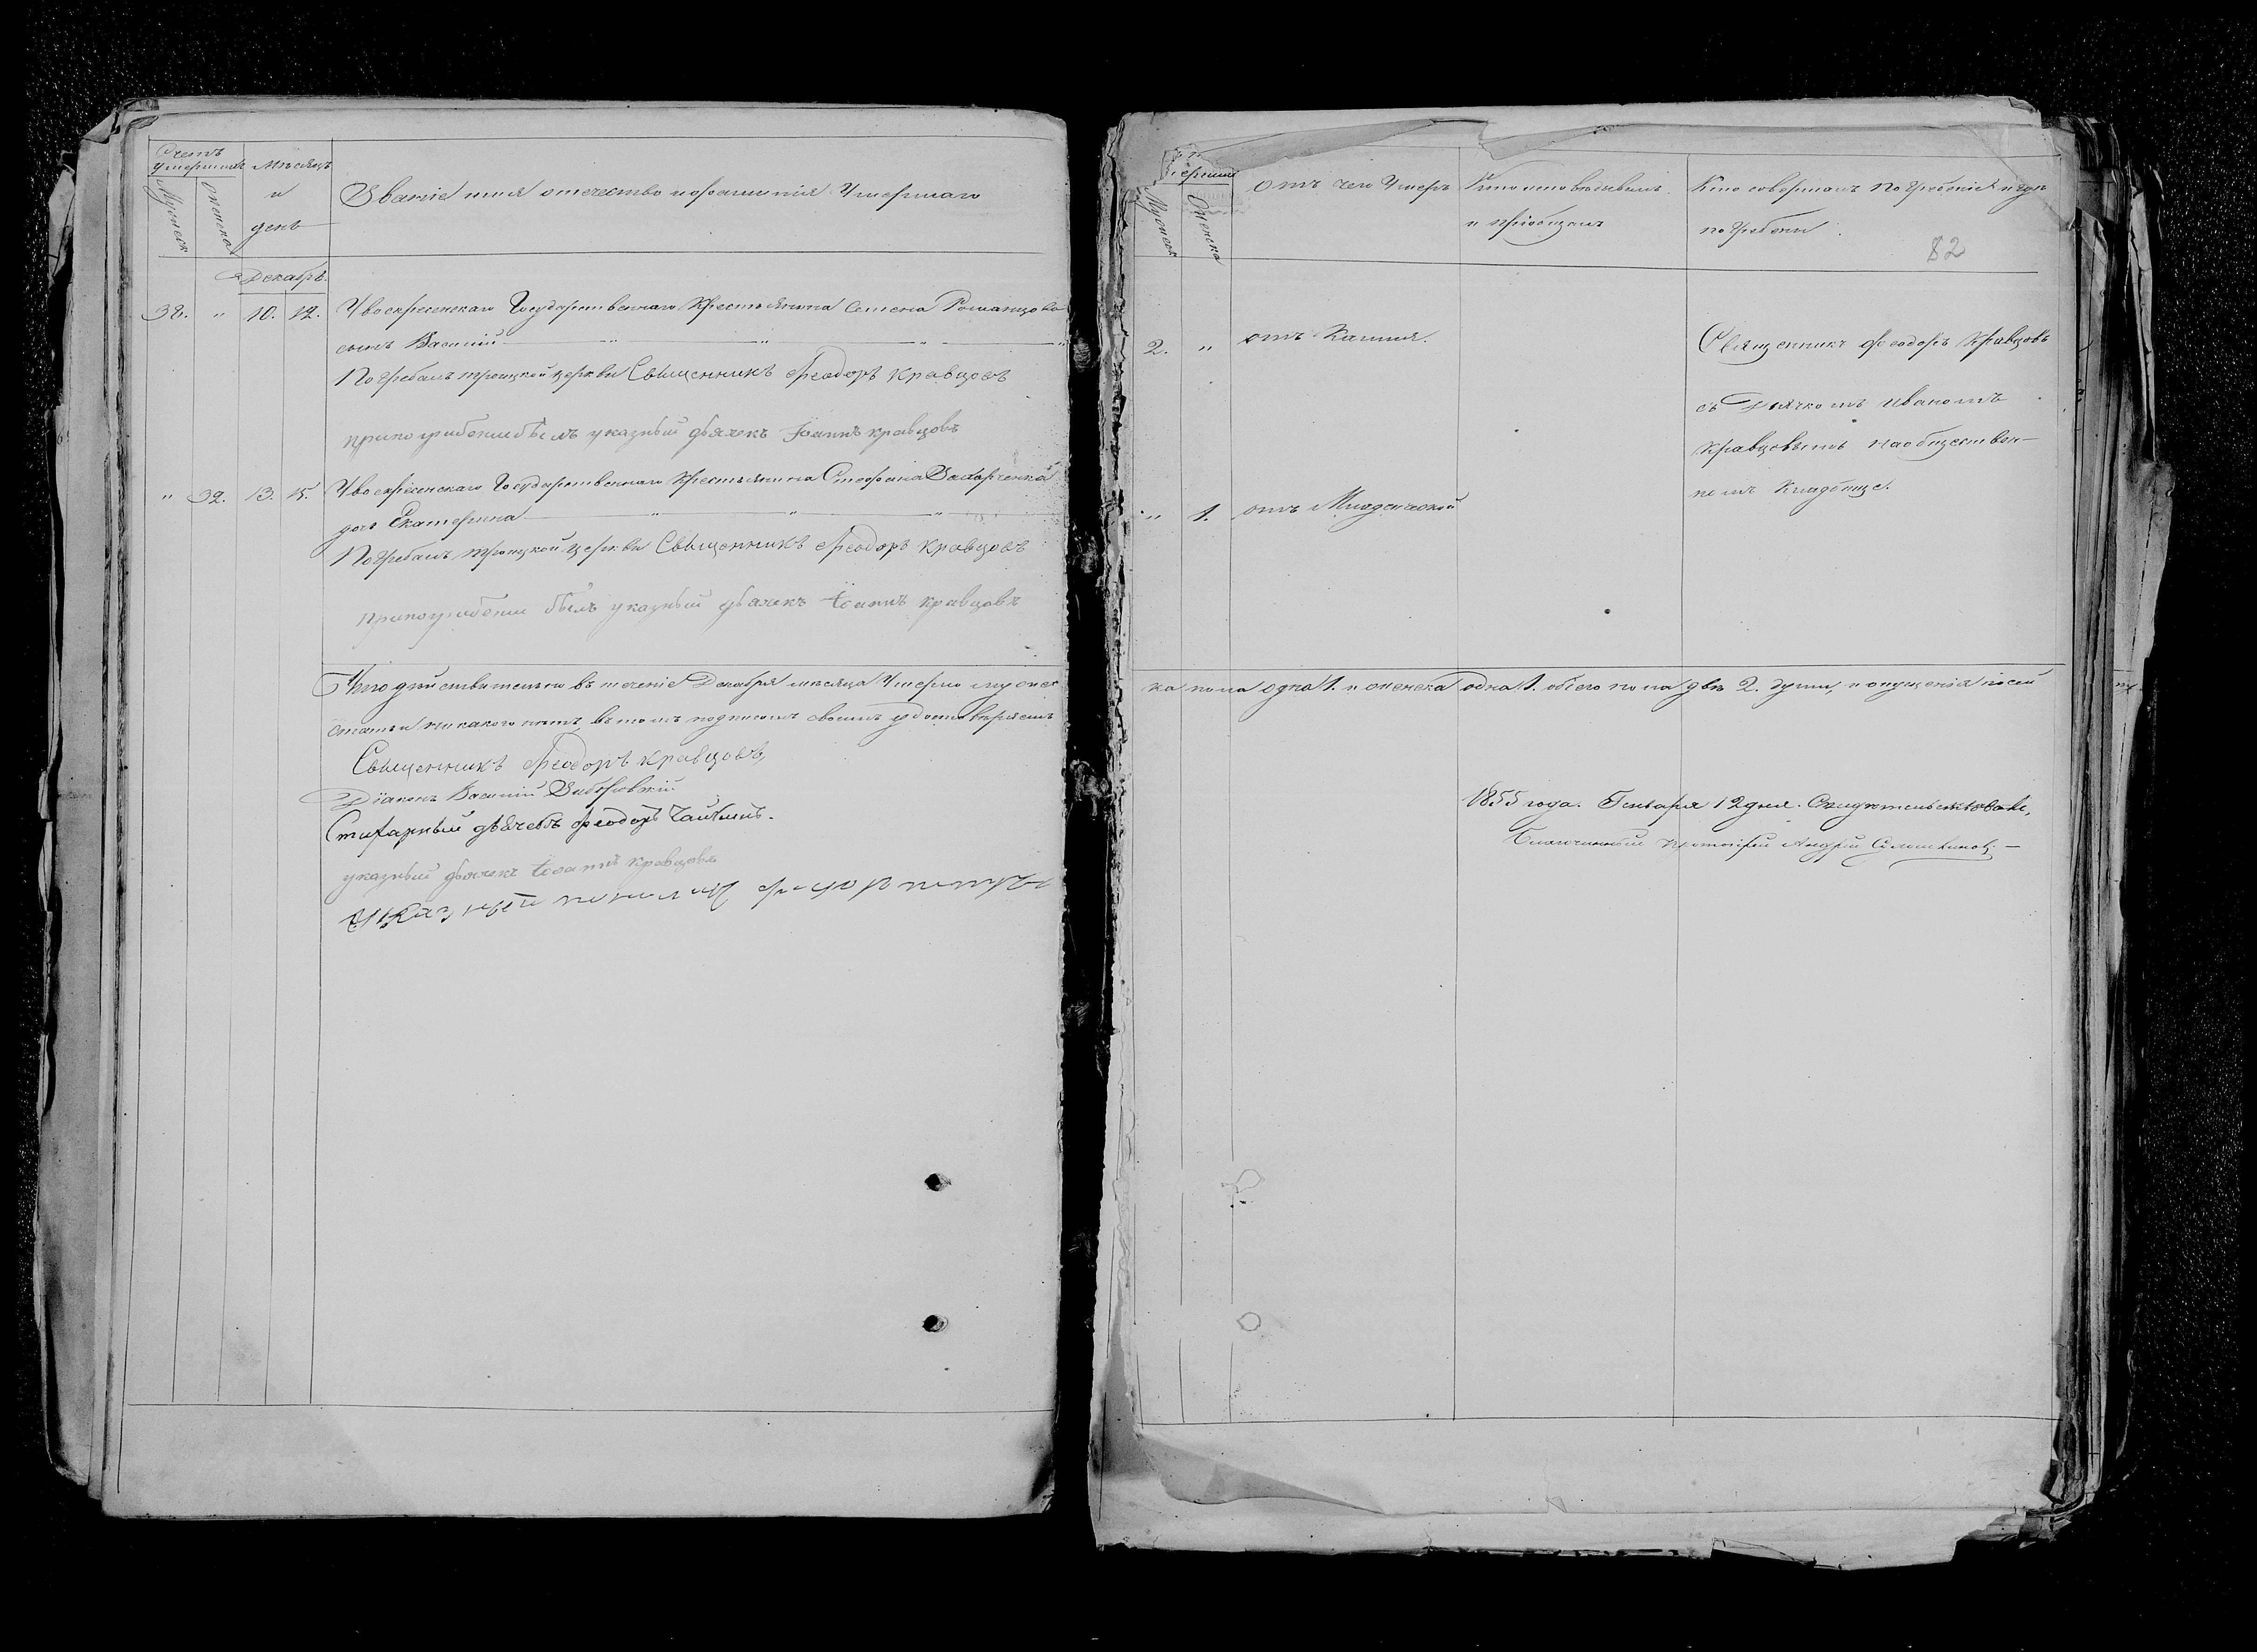 Счетъ
умершихъ
Мужеска
Женска
Мѣсяцъ
и
день
Званіе имя отечество ифамилія Умершаго
Декабрь.
38. " 10. 12. Увоскресенскаго Государственнаго Крестьянина Семена Романцова
сынъ Василий
Погребалъ троицкой церкви Священникъ Феодоръ Кравцовъ
припогрибение былъ указный дьячекъ Іоаннъ кравцовъ
" 39. 13. 15. Увоскресенскаго Государственнаго Крестьянина Стефана Захарченка
дочь Екатерина
Погребалъ троицкой церкви Священникъ Феодоръ Кравцовъ
припогрибении былъ указный дьячекъ Іоаннъ кравцовъ
Что действительно въ течение Декабря месяца Умерло мужес
статьи никакого нетъ втомъ подписомъ своимъ удостоверяемъ
Священникъ Феодоръ Кравцовъ,
Діаконъ Василий
Стихарный дьячекъ Феодоръ
указный дьячекъ Іоаннъ кравцовъ
Указный пономарь
Мужеска
Женска
отъ чего Умеръ
Кто исповѣдывалъ
и пріобщалъ
Кто совершалъ Погребение и где
погребены
82
2. " отъ Кашля.
Священникъ Феодоръ Кравцовъ
съ Дьячкомъ Иваномъ
Кравцовымъ наобществен-
помъ Кладбище.
" 1. отъ Младенческой
ка пола одна 1. и женска одна 1. обоего пола две 2. души, и опущения посей
1855 года. Генваря 12 дня. Свидетельствовалъ,
Благочинный Протоіерей Андрей